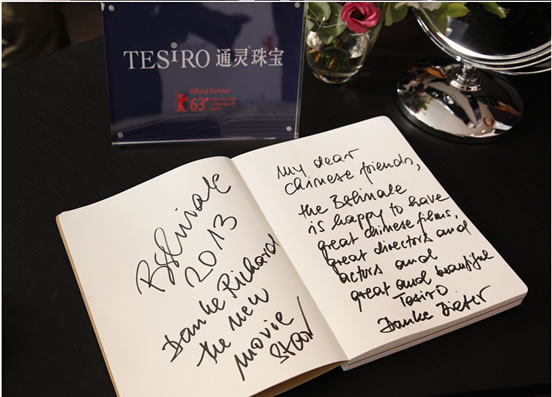 TESIRO 通灵珠宝
Official Partner
63
Berlinale
2013
Danke Richard
the new
movie
Star
My dear
chinese friends,
the Berlinale
is happy to have
great chinese films,
great directors and
actors and
great and beautiful
Tesiro
Danke Dieter